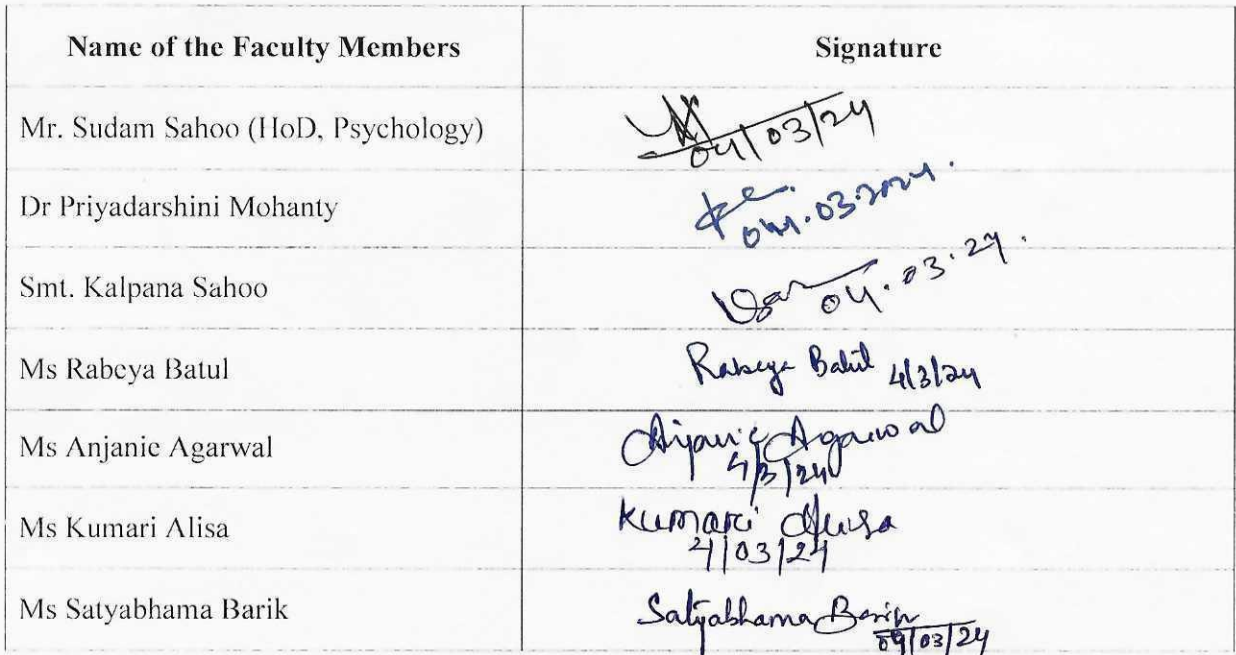 Name of the Faculty Members Signature
Mr. Sudam Sahoo (HoD, Psychology)
04/03/24
Dr Priyadarshini Mohanty
04.03.2024.
Smt. Kalpana Sahoo
04.03.24.
Ms Rabeya Batul Rabeya Batul 4/3/24
Ms Anjanie Agarwal Anjanie Agarwal
4/3/24
Ms Kumari Alisa Kumari Alisa
4/03/24
Ms Satyabhama Barik Satyabhama Barik
04/03/24